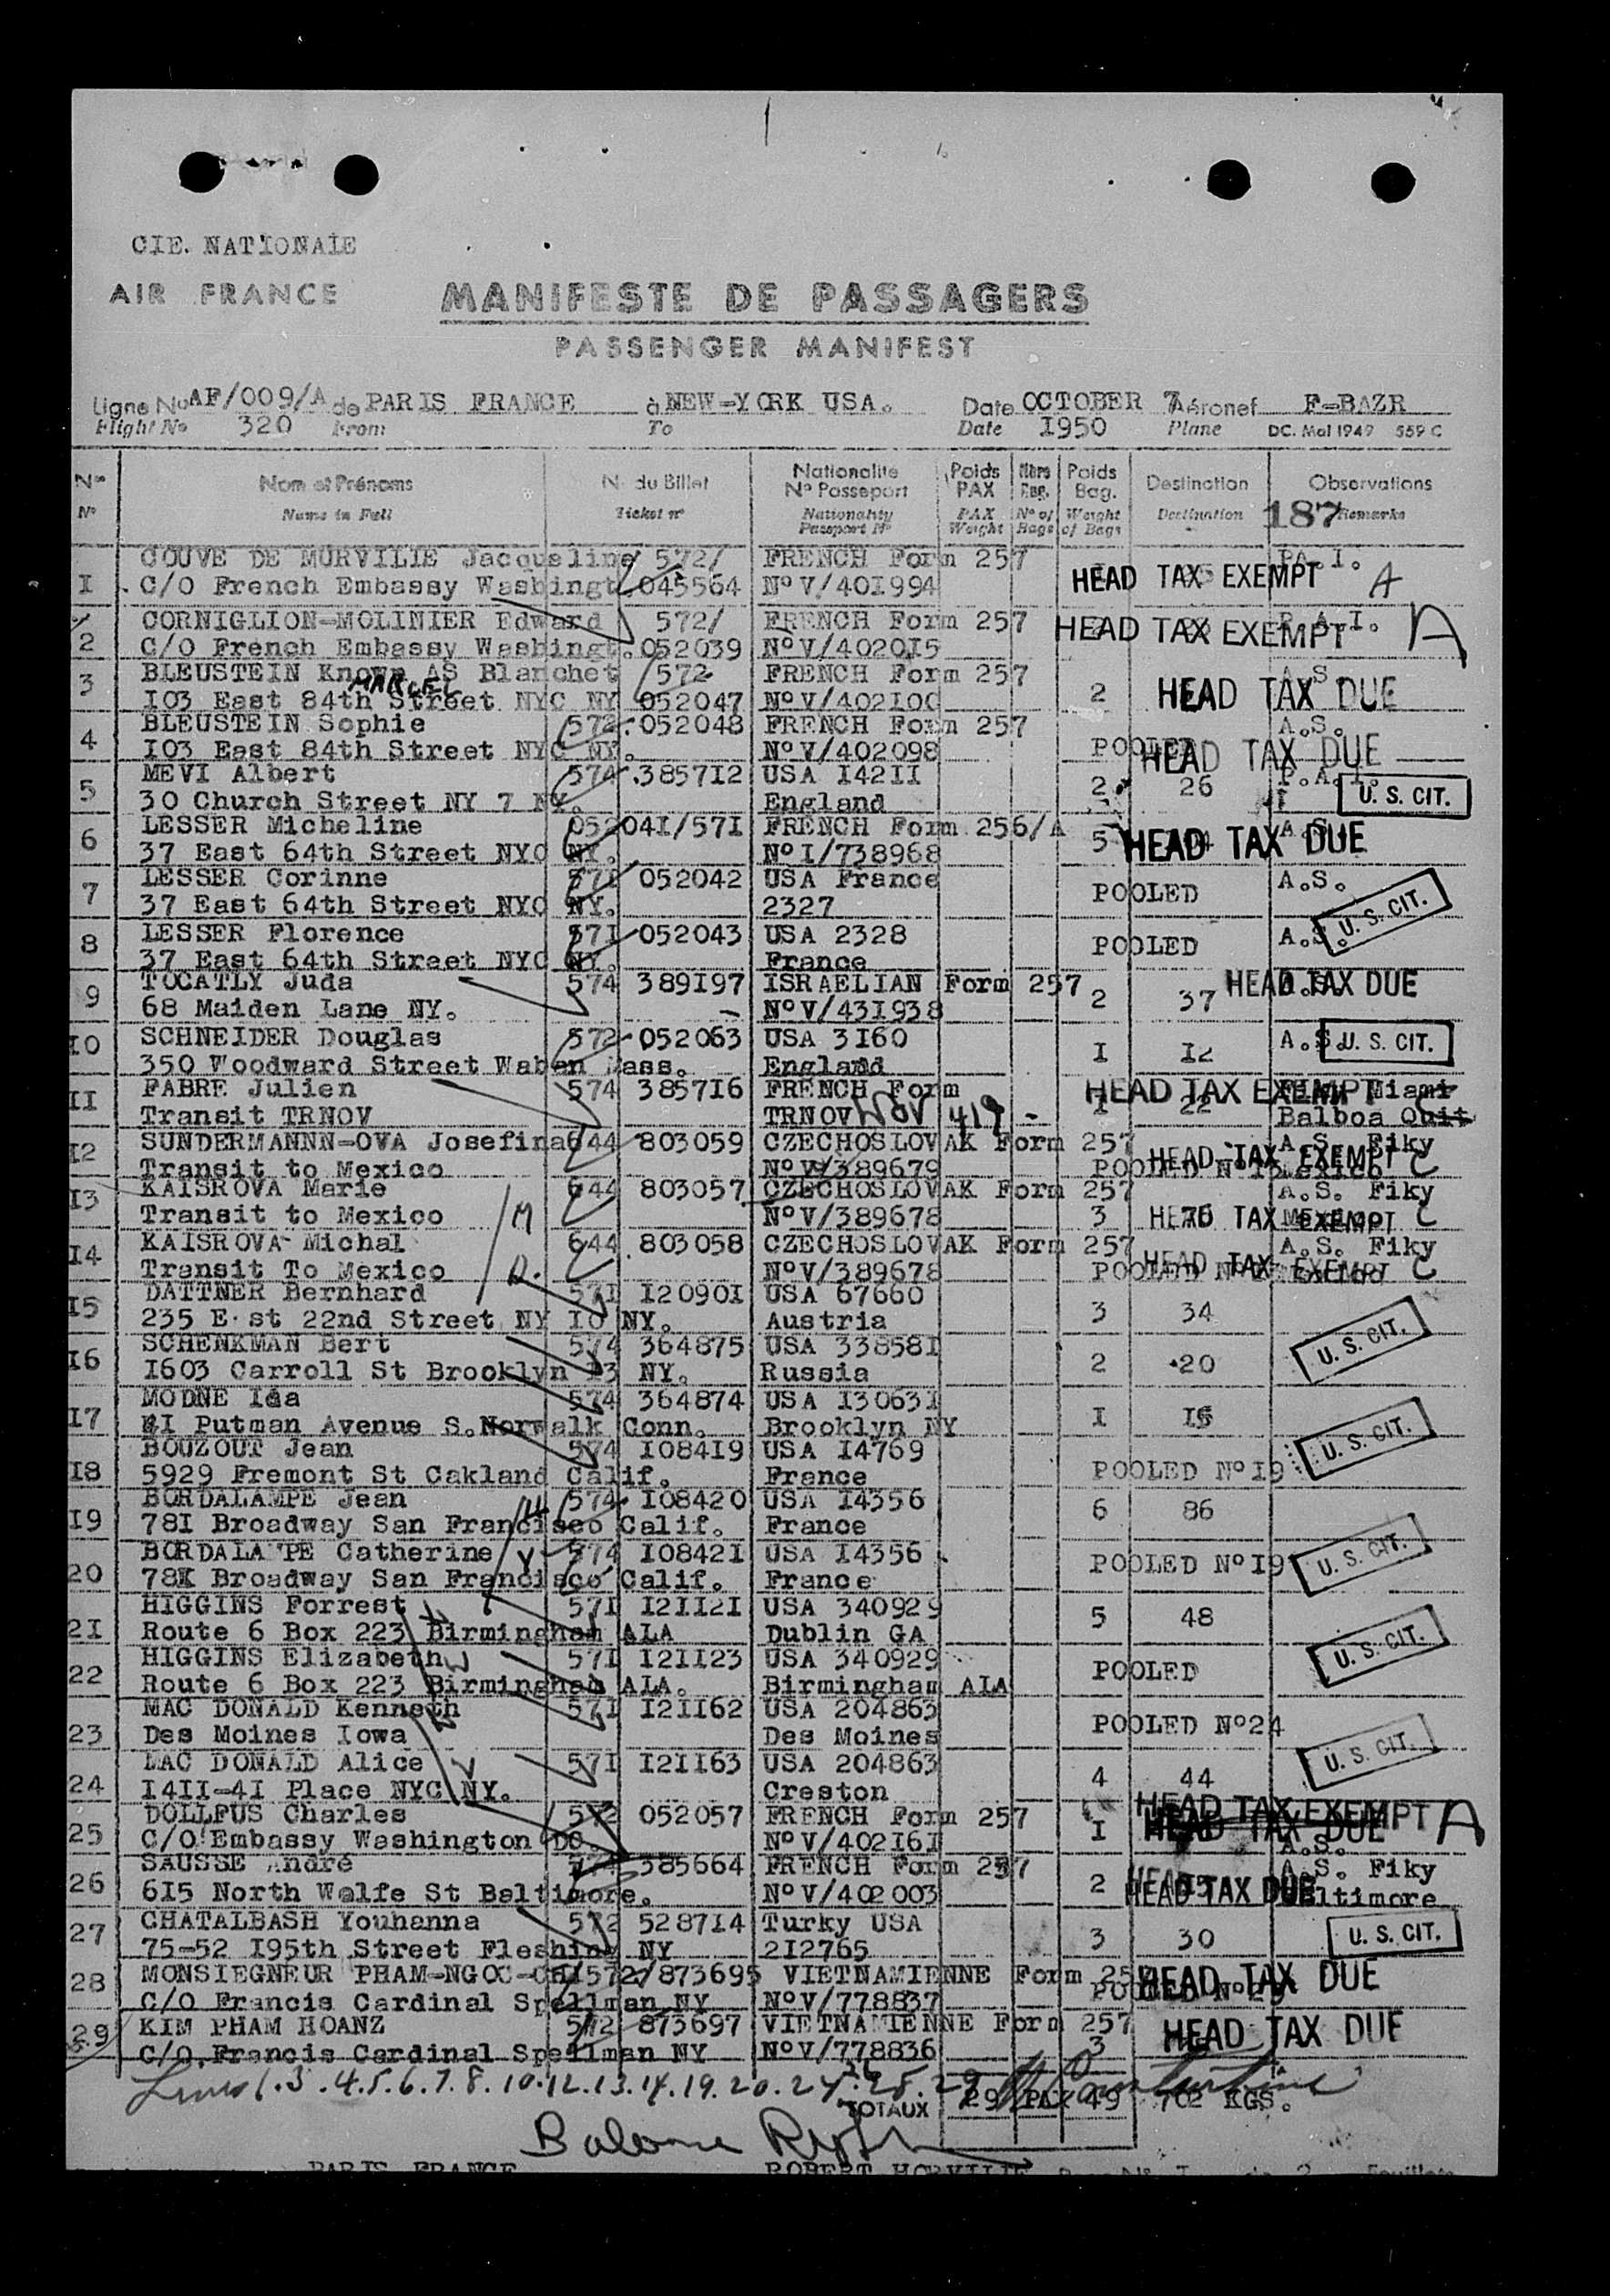 CIE. NATIONALE
AIR FRANCE
MANIFESTE DE PASSAGERS
PASSENGER MANIFEST
Ligne No AF/009/A de PARIS FRANCE à NEW-YORK USA. Date OCTOBER 7 Aéronef F-BAZR
Flight No 320 From To Date I950 Plane DC. Mal 1949 559 C
No Nom et Prénoms N. du Billet Nationalite No Passeport Poids PAX Nbre Bag. Poids Bag. Destination Observations
No Name in Full Ticket no Nationality Passport No PAX Weight No of Bags Weight of Bags Destination 187 Remarks
COUVE DE MURVILIE Jacqueline 572/ FRENCH Form 257 PA.I.
I C/O French Embassy Washingt. 045564 No V/40I994 HEAD TAX EXEMPT A
CORNIGLION-MOLINIER Edward 572/ FRENCH Form 257 P.A.I.
2 C/O French Embassy Washingt. 052039 No V/4020I5 HEAD TAX EXEMPT A
BLEUSTEIN Known AS Blanchet 572 FRENCH Form 257 A.S.
MARCEL
3 I03 East 84th Street NYC NY 052047 No V/402I00 2 HEAD TAX DUE
BLEUSTEIN Sophie 572 052048 FRENCH Form 257 A.S.
4 I03 East 84th Street NYC NY. No V/402098 POOLED HEAD TAX DUE
MEVI Albert 574 3857I2 USA I42II P.A.I.
5 30 Church Street NY 7 NY. England 2 26 U. S. CIT.
LESSER Micheline 05204I/57I FRENCH Form 256/A A.S.
6 37 East 64th Street NYC NY. No I/738968 5 HEAD TAX DUE
LESSER Corinne 57I 052042 USA France A.S.
7 37 East 64th Street NYC NY. 2327 POOLED U. S. CIT.
LESSER Florence 57I 052043 USA 2328 A.S.
8 37 East 64th Street NYC NY. France POOLED
TOCATLY Juda 574 389I97 ISRAELIAN Form 257 HEAD TAX DUE
9 68 Maiden Lane NY. No V/43I938 2 37
SCHNEIDER Douglas 572 052063 USA 3I60 A.S. U. S. CIT.
I0 350 Woodward Street Waban Mass. England I I2
FABRE Julien 574 3857I6 FRENCH Form HEAD TAX EXEMPT Miami
II Transit TRNOV TRNOV WOV 419 - I 22 Balboa Quit C
SUNDERMANNN-OVA Josefina 644 803059 CZECHOSLOVAK Form 257 A.S. Fiky
I2 Transit to Mexico No V/389679 POOLED No I3 Mexico HEAD TAX EXEMPT C
KAISROVA Marie 644 803057 CZECHOSLOVAK Form 257 A.S. Fiky
I3 Transit to Mexico M No V/389678 3 HEAD TAX EXEMPT Mexico C
KAISROVA Michal 644 803058 CZECHOSLOVAK Form 257 A.S. Fiky
I4 Transit To Mexico D. No V/389678 POOLED HEAD TAX EXEMPT C
DATTNER Bernhard 57I I2090I USA 67660
I5 235 E st 22nd Street NY I0 NY. Austria 3 34 U. S. CIT.
SCHENKMAN Bert 574 364875 USA 33858I
I6 I603 Carroll St Brooklyn I3 NY. Russia 2 20
MODNE Ida 574 364874 USA I3063I
I7 4I Putman Avenue S.Norwalk Conn. Brooklyn NY I I6 U. S. CIT.
BOUZOUT Jean 574 I084I9 USA I4769
I8 5929 Fremont St Oakland Calif. France POOLED No I9
BORDALAMPE Jean 574 I08420 USA I4356
I9 78I Broadway San Francisco Calif. France 6 86
BORDALA PE Catherine 574 I0842I USA I4356
20 78I Broadway San Francisco Calif. France POOLED No I9 U. S. CIT.
HIGGINS Forrest 57I I2II2I USA 340929
2I Route 6 Box 223 Birmingham ALA Dublin GA 5 48
HIGGINS Elizabeth 57I I2II23 USA 340929 U. S. CIT.
22 Route 6 Box 223 Birmingham ALA. Birmingham ALA POOLED
MAC DONALD Kenneth 57I I2II62 USA 204863
23 Des Moines Iowa Des Moines POOLED No 24
MAC DONALD Alice 57I I2II63 USA 204863 U. S. CIT.
24 I4II-4I Place NYC NY. Creston 4 44
DOLLFUS Charles 572 052057 FRENCH Form 257 HEAD TAX EXEMPT A
25 C/O Embassy Washington DC. No V/402I6I I HEAD TAX DUE A.S.
SAUSSE André 574 385664 FRENCH Form 257 A.S. Fiky
26 6I5 North Wolfe St Baltimore. No V/402003 2 HEAD TAX DUE Baltimore
CHATALBASH Youhanna 572 5287I4 Turky USA
27 75-52 I95th Street Fleshing NY 2I2765 3 30 U. S. CIT.
MONSIEGNEUR PHAM-NGOC-CHI 572/873695 VIETNAMIENNE Form 257 HEAD TAX DUE
28 C/O Francis Cardinal Spellman NY No V/778837 POOLED No 29
KIM PHAM HOANZ 572 873697 VIETNAMIENNE Form 257 HEAD TAX DUE
29 C/O Francis Cardinal Spellman NY No V/778836 3
Lines 1.3.4.5.6.7.8.10.12.13.14.19.20.24.26.28.29
TOTAUX 29 PAX 49 702 KGS.
PARIS FRANCE ROBERT HORVILLE